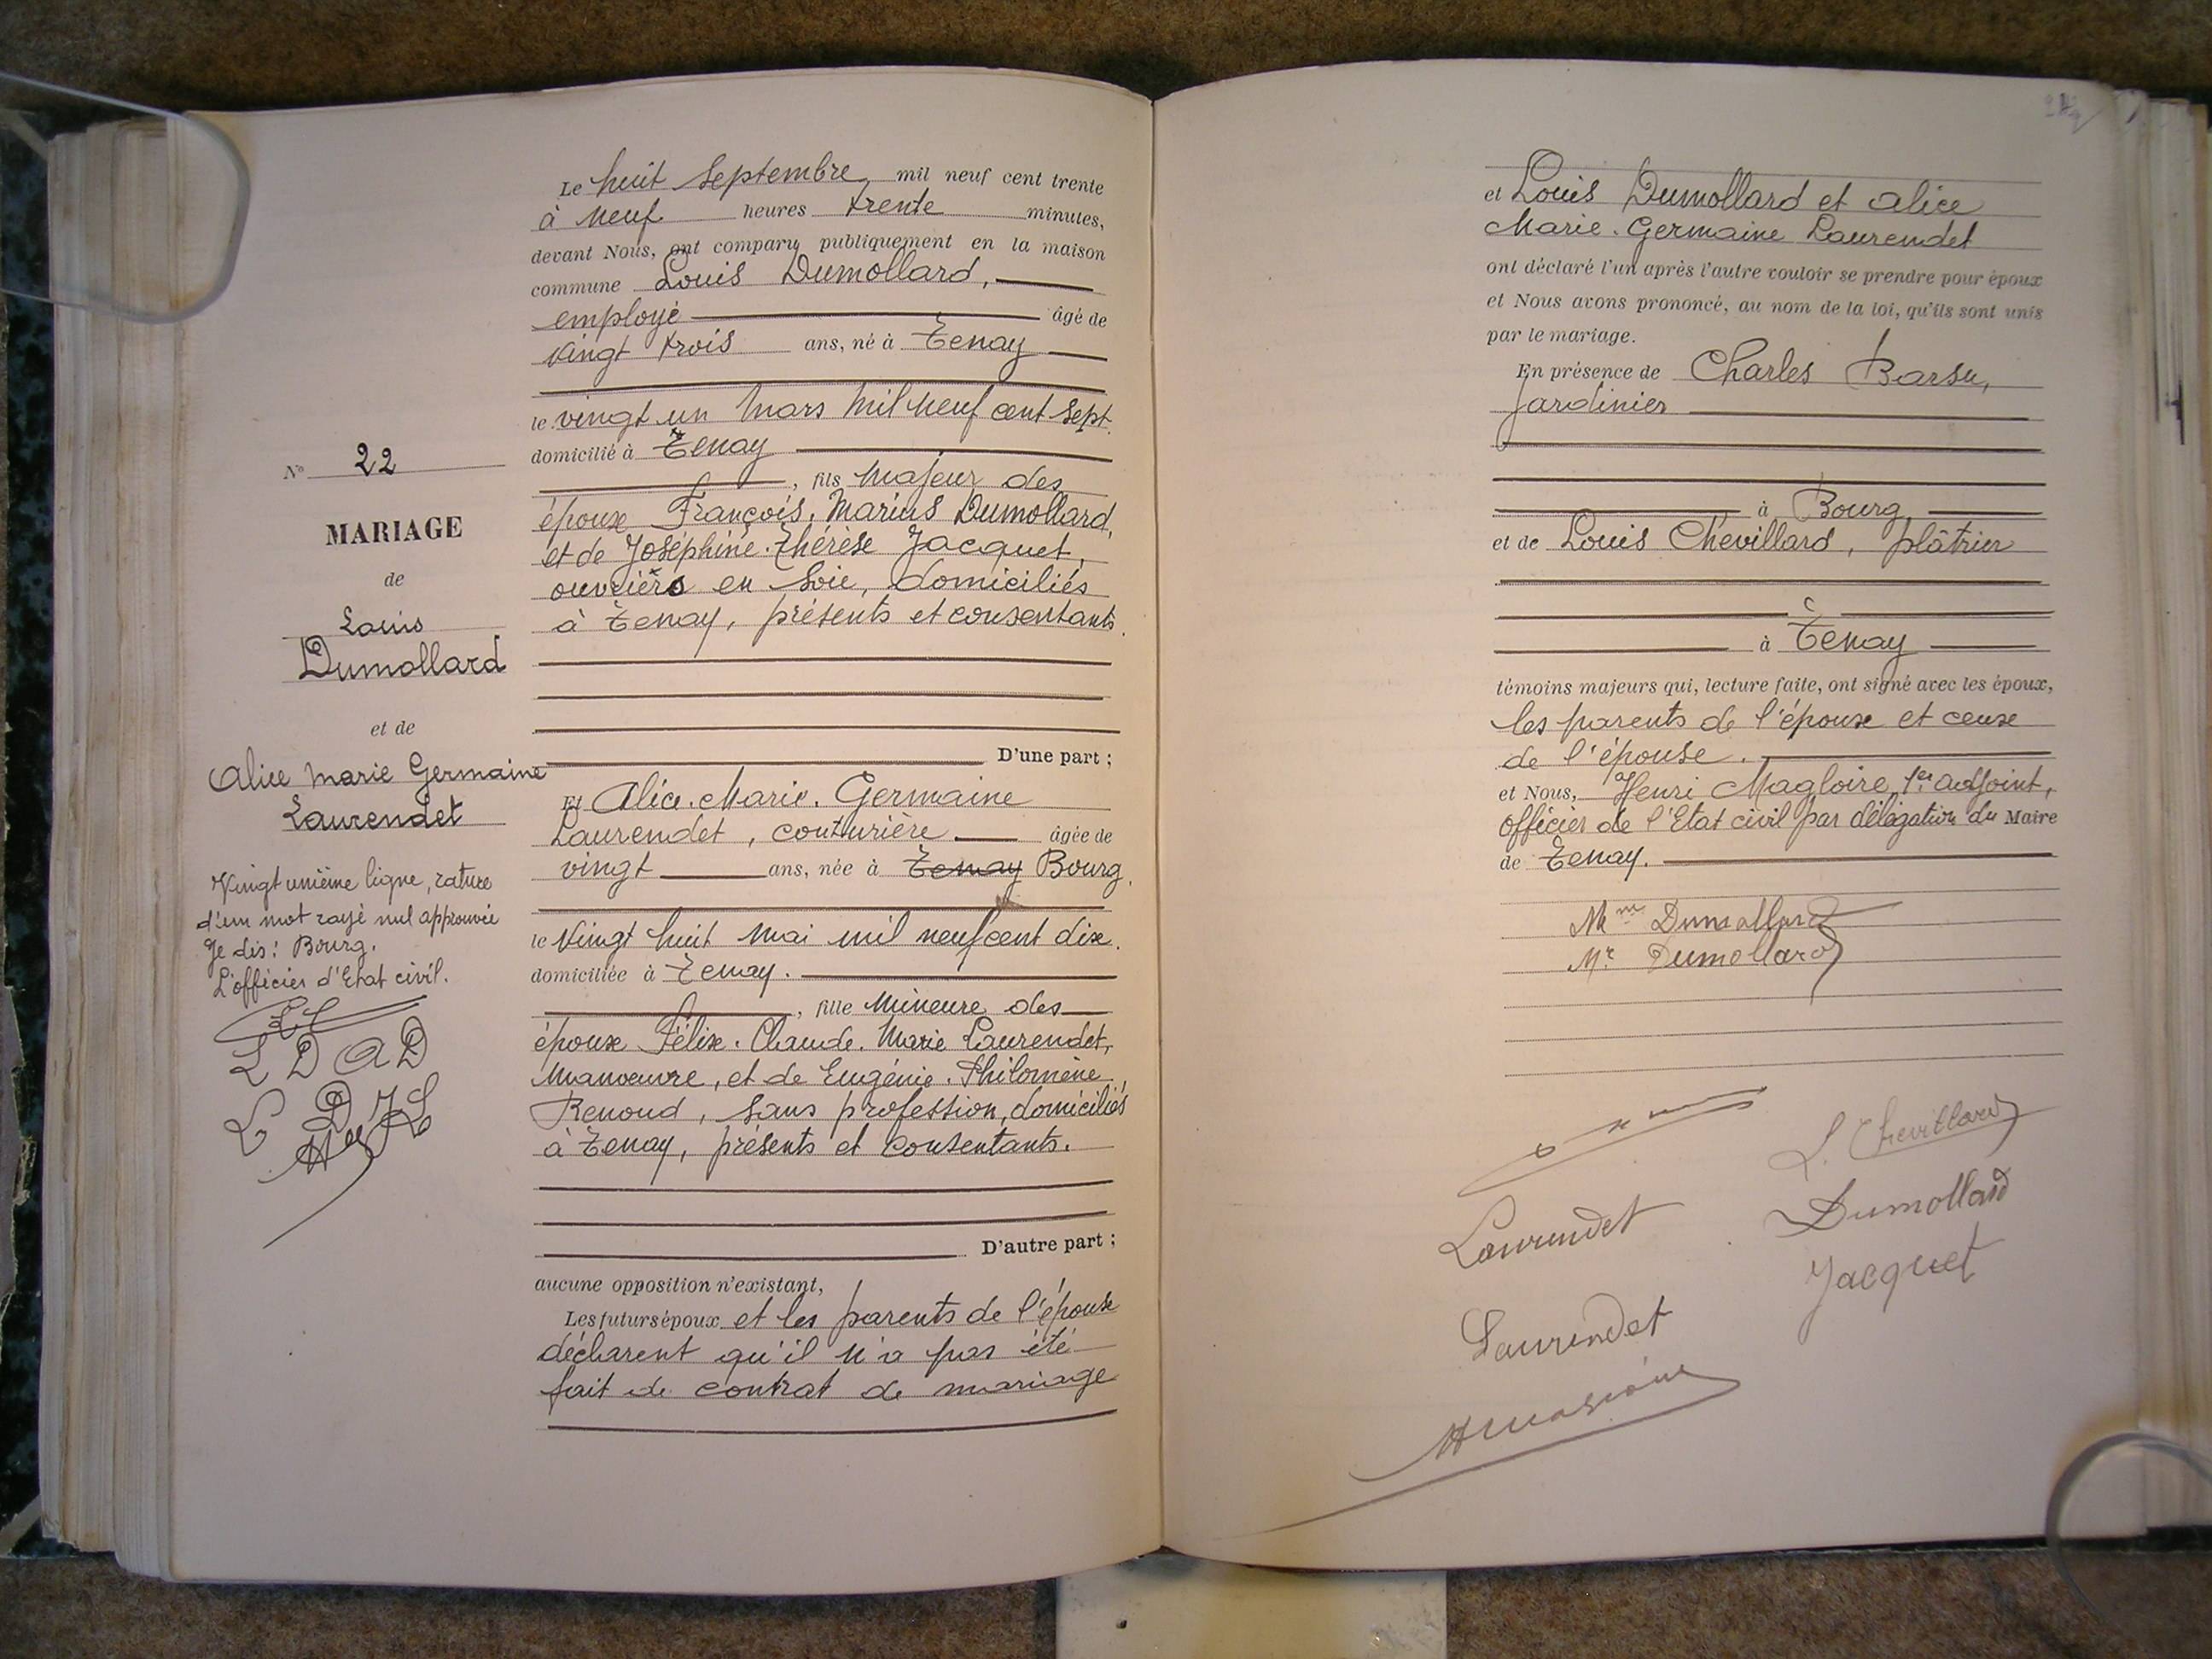 N° 22
MARIAGE
de
Louis
Dumollard
et de
Alice Marie Germaine
Laurendet
Vingt unième ligne, rature
d'un mot rayé nul approuvée
Je dis: Bourg.
L'officier d'Etat civil.
L D A D
Le huit Septembre, mil neuf cent trente
à neuf heures trente minutes,
devant Nous, ont comparu publiquement en la maison
commune Louis Dumollard,
employé âgé de
vingt trois ans, né à Tenay
le vingt un Mars mil neuf cent sept.
domicilié à Tenay
, fils majeur des
époux François. Marius Dumollard,
et de Joséphine. Thérèse Jacquet,
ouvriers en Soie, domiciliés
à Tenay, présents et consentants.
D'une part ;
Et Alice. Marie. Germaine
Laurendet, couturière âgée de
vingt ans, née à Tenay Bourg.
le vingt huit mai mil neuf cent dix.
domiciliée à Tenay.
, fille mineure des
époux Félix. Claude. Marie Laurendet,
manœuvre, et de Eugénie. Philomène,
Renoud, sans profession, domiciliés
à Tenay, présents et consentants.
D'autre part ;
aucune opposition n'existant,
Les futurs époux et les parents de l'épouse
déclarent qu'il n'a pas été
fait de contrat de mariage
et Louis Dumollard et Alice
Marie. Germaine Laurendet
ont déclaré l'un après l'autre vouloir se prendre pour époux
et Nous avons prononcé, au nom de la loi, qu'ils sont unis
par le mariage.
En présence de Charles Barsu,
Jardinier
à Bourg
et de Louis Chevillard, plâtrier
à Tenay
témoins majeurs qui, lecture faite, ont signé avec les époux,
les parents de l'épouse et ceux
de l'épouse.
et Nous, Henri Magloire, 1er adjoint,
officier de l'Etat civil par délégation du Maire
de Tenay.
Mme Dumollard
Mr Dumollard
L. Chevillard
Laurendet
Dumollard
Jacquet
Laurendet